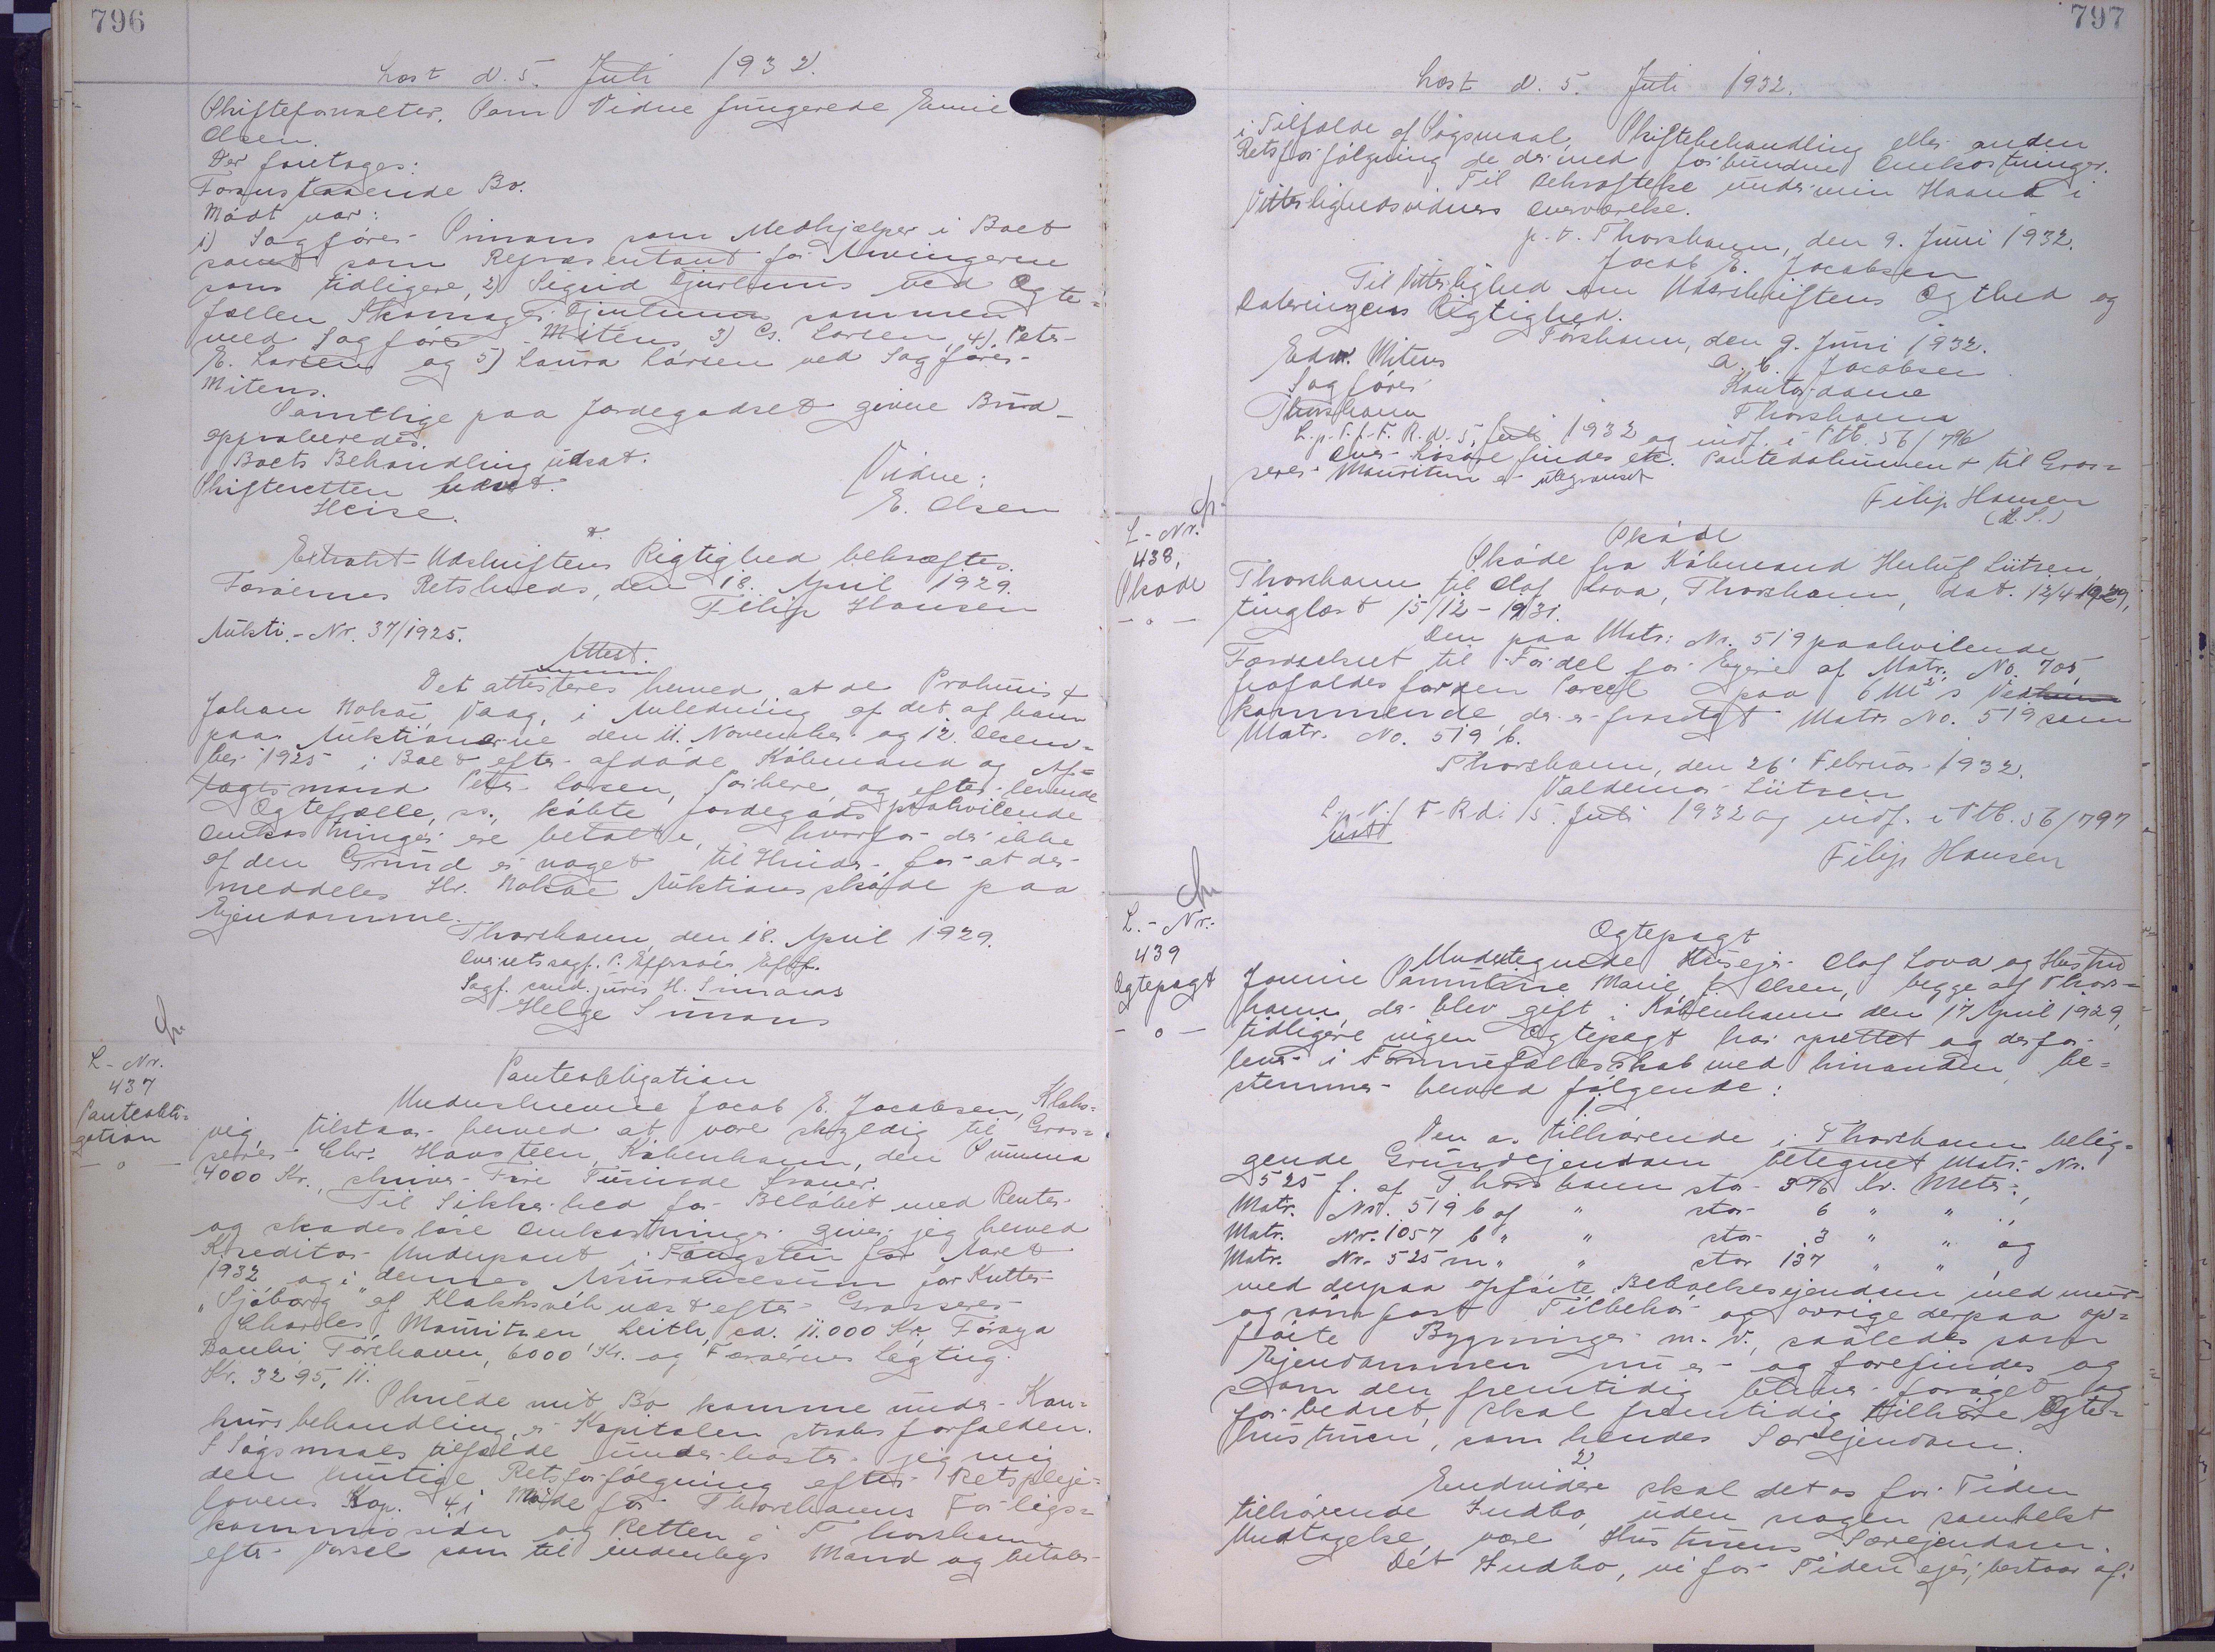 796
Læst d. 5. Juli 1932.
Skifteforvalter. Som Vidne fungerede Emil
Olsen.
Der foretoges:
Foranstaaende Bo.
Mødt var:
1) Sagfører Simons som Medhjælper i Boet
samt som Repræsentant for Arvingerne
som tidligere, 2) Sigrid Djurhuus ved Ægte=
fællen Skomager Djurhuus sammen
med Sagfører Mitens 3) Cs. Larsen, 4). Peter
E. Larsen og 5) Laura Larsen ved Sagfører
Mitens.
Samtlige paa Jordegodset givne Bud
approberedes.
Boets Behandling udsat.
Skifteretten hævet.
Heise.
Vidne:
E. Olsen
Extrakt-Udskriftens Rigtighed bekræftes.
Færøernes Retskreds, den 18. April 1929.
Filip Hansen
Aukti.-Nr. 37/1925.
Attest.
Det attesteres herved, at de Prokurist
Johan Nolsøe, Vaag, i Anledning af det af ham
paa Auktionerne den 11. November og 12. Decem=
ber 1925 i Boet efter afdøde Købmand og Af=
tagtsmand Peter Larsen, Porkere og efterlevende
Ægtefælle, ss. købte Jordegods paahvilende
Omkostninger ere betalte, hvorfor der ikke
af den Grund er noget til Hinder for at der
meddeles Hr. Nolsøe Auktionsskøde paa
Ejendomme.
Thorshavn, den 18. April 1929.
Overretssagf. P. Effersøes Eftf.
Sagf. cand. juris H. Simonas
Helge Simons
L-Nr.
437
Panteobli-
gation
- o -
Panteobligation
Underskrevne Jacob E. Jacobsen, Klaks=
vig, tilstaar herved at være skyldig til Gros=
serer Chr. Haasteen, København, den Summa
4000 Kr., skriver Fire Tusinde Kroner.
Til Sikkerhed for Beløbet med Renter
og skadesløse Omkostninger giver jeg herved
Kreditor Underpant i Fangsten for Aaret
1932 og i dennes Assurancesum for Kutter
"Sjóborg" af Klakksvík næst efter Grosserer
Charles Mauritzen, Leith, ca. 11.000 Kr., Føroya
Banki Tórshavn, 6000 Kr. og Færøernes Lagting
Kr. 3295,11.
Skulde mit Bo komme under Kon=
kursbehandling, er Kapitalen straks forfalden.
I Søgsmaals tilfælde underkaster jeg mig
den hurtige Retsforfølgning efter Retspleje-
lovens Kap. 41 Møde for Thorshavns Forligs=
kommission og Retten i Thorshavn
efter Varsel som til indenbys Mand og betaler
797
Læst d. 5. Juli 1932.
i Tilfælde af Søgsmaal, Skiftebehandling eller anden
Retsforfølgning de dermed forbundne Omkostninger.
Til Bekræftelse under min Haand i
Vitterlighedsvidners Overværelse.
p. t. Thorshavn, den 9. Juni 1932.
Jacob E. Jacobsen
Til Vitterlighed om Underskriftens Ægthed og
Dateringens Rigtighed.
Tórshavn, den 9. Juni 1932.
Edw. Mitens
Sagfører
Thorshavn
A. C. Jacobsen
Kontordame
Thorshavn
L. p. T. f. F. R. d. 5. Juli 1932 og indf. i Ptb. 56/796
Pantedokument til Gros=
serer Mauritzen er ubegrænset
Filip Hansen
(L. S.)
L-Nr.
438,
Skøde
- o -
Skøde
Skøde fra Købmand Herluf Lützen
Thorshavn til Olaf Lova, Thorshavn, dat. 12/4 1929,
tinglæst 15/12-1931.
Den paa Matr. Nr. 519 paahvilende
Færdselsret til Fordel for Ejerne af Matr. No. 705,
frafaldes for den Parcel paa 6 M²s Ved
kommende, der er frasolgt Matr. No. 519 som
Matr. No. 519 b.
Thorshavn, den 26. Februar 1932.
Valdemar Lützen
L. p. T. f. F. R. d. 5. Juli 1932 og indf. i Ptb. 56/797
Filip Hansen
L.-Nr.
439
Ægtepagt
- o -
Ægtepagt
Undertegnede Husejer Olaf Lova og Hustru
Jonnie Pauline Marie f. Olsen, begge af Thors=
havn, der blev gift i København den 17 April 1929,
tidligere ingen Ægtepagt har oprettet og derfor
lever i Formuefællesskab med hinanden, be=
stemmer herved følgende:
1.
Den os tilhørende i Thorshavn belig=
gende Grundejendom betegnet Matr. Nr.
525 f. af Thorshavn stor 376 Kv. Meter,
Matr. Nr. 519 b af " stor 6 " " ,
Matr. Nr. 1057 b " " stor 3 " " og
Matr. Nr. 525 m " " stor 137 " " ,
med derpaa opførte Beboelsesejendom med mur-
og sømfast Tilbehør og øvrige derpaa op=
førte Bygninger m. v., saaledes som
Ejendommen nu er og forefindes og
som den fremtidig bliver forøget og
forbedret, skal fremtidig tilhøre Ægte=
hustruen, som hendes Særejendom.
2)
Endvidere skal det os for Tiden
tilhørende Indbo, uden nogen somhelst
Undtagelse være Hustruens Særejendom.
Det Indbo, vi for Tiden ejer, bestaar af: